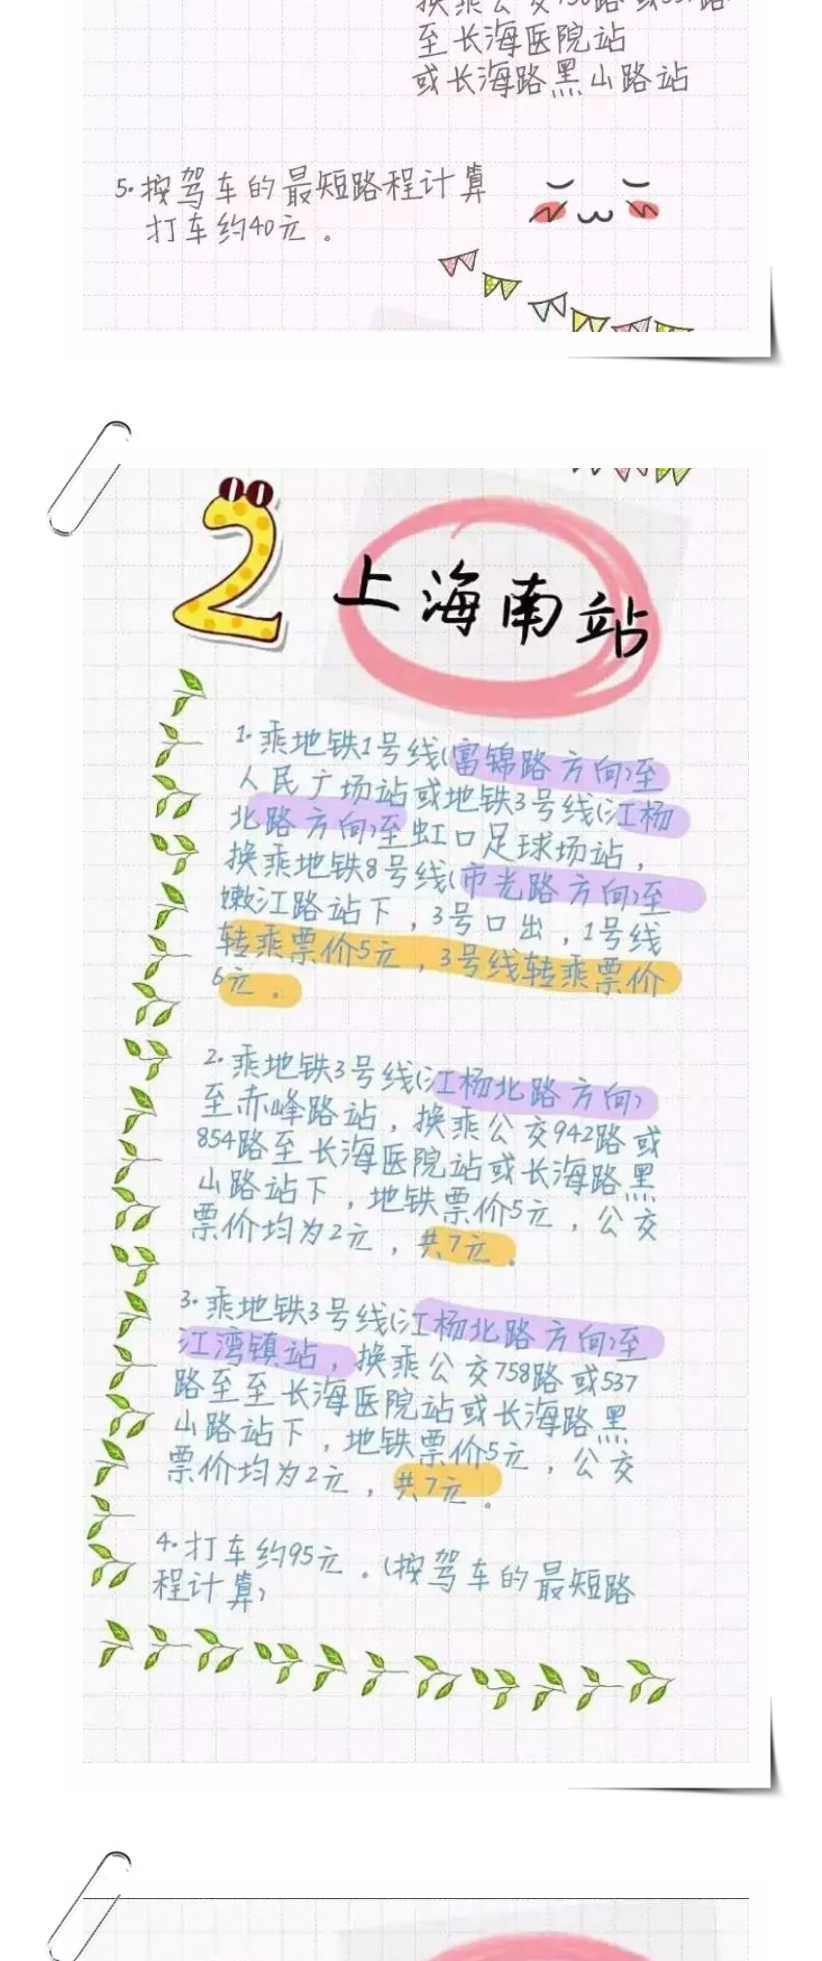 至长海医院站
或长海路黑山路站
5.按驾车的最短路程计算
打车约40元。
2
上海南站
1.乘地铁1号线(富锦路方向)至
人民广场站或地铁3号线(江杨
北路方向)至虹口足球场站，
换乘地铁8号线(市光路方向)至
嫩江路站下，3号口出，1号线
转乘票价5元，3号线转乘票价
6元。
2.乘地铁3号线(江杨北路方向)
至赤峰路站，换乘公交942路或
854路至长海医院站或长海路黑
山路站下，地铁票价5元，公交
票价均为2元，共7元。
3.乘地铁3号线(江杨北路方向)至
江湾镇站，换乘公交758路或537
路至至长海医院站或长海路黑
山路站下，地铁票价5元，公交
票价均为2元，共7元。
4.打车约95元。(按驾车的最短路
程计算)